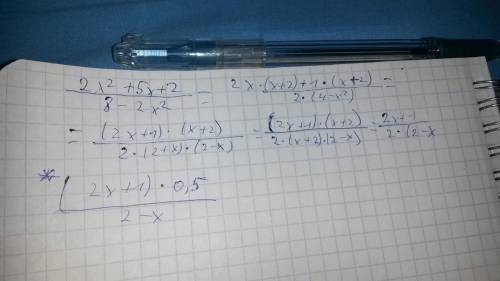 (2x² + 5x + 2)/(8 - 2x²) = (2x·(x+2)+1·(x+2))/(2·(4-x²)) =
= ((2x+1)·(x+2))/(2·(2+x)·(2-x)) = ((2x+1)·(x+2))/(2·(x+2)·(2-x)) = (2x+1)/(2·(2-x
* ((2x+1)·0,5)/(2-x)